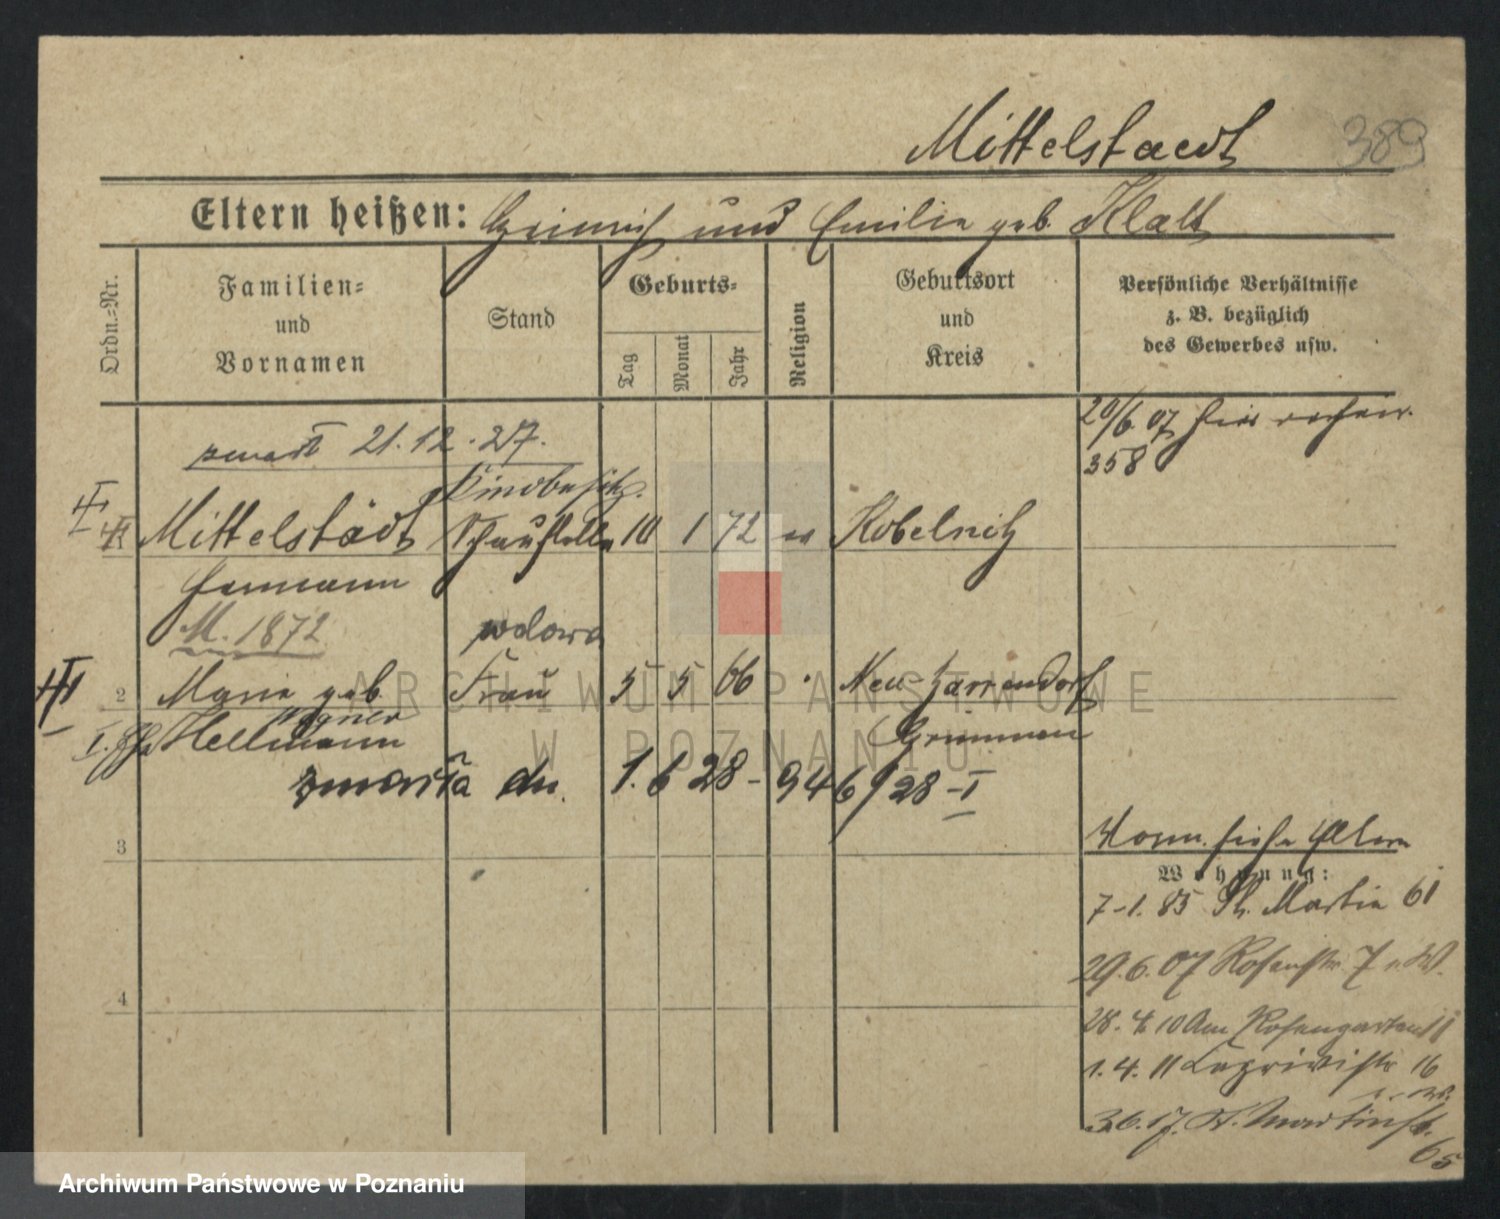 Mittelstaedt 389
Eltern heißen: Heinrich und Emilie geb. Klatt
Ordn.=Nr.
Familien=
und
Vornamen
Stand
Geburts=
Tag
Monat
Jahr
Religion
Geburtsort
und
Kreis
Persönliche Verhältnisse
z. B. bezüglich
des Gewerbes usw.
20/6. 07 hier
358
zmarł 21.12.27.
Mittelstädt 10 1 72 ev Kobelnitz
Hermann
M. 1872
wdowa
2 Marie geb. Frau 5 5 66 Neu-Zarrendorf
Wegner
I. Hellmann Grimmen
zmarła dn. 1.6 28 - 946/28 - I
3
Wohnung:
7-1. 85 St. Martin 61
29.6.07 Rosenstr. 7 v. W.
4
28. 4. 10 Am Rosengarten 11
1. 4. 11 Caprivistr 16
v. W.
St. Martinstr.
65
ARCHIWUM PAŃSTWOWE
W POZNANIU
Archiwum Państwowe w Poznaniu